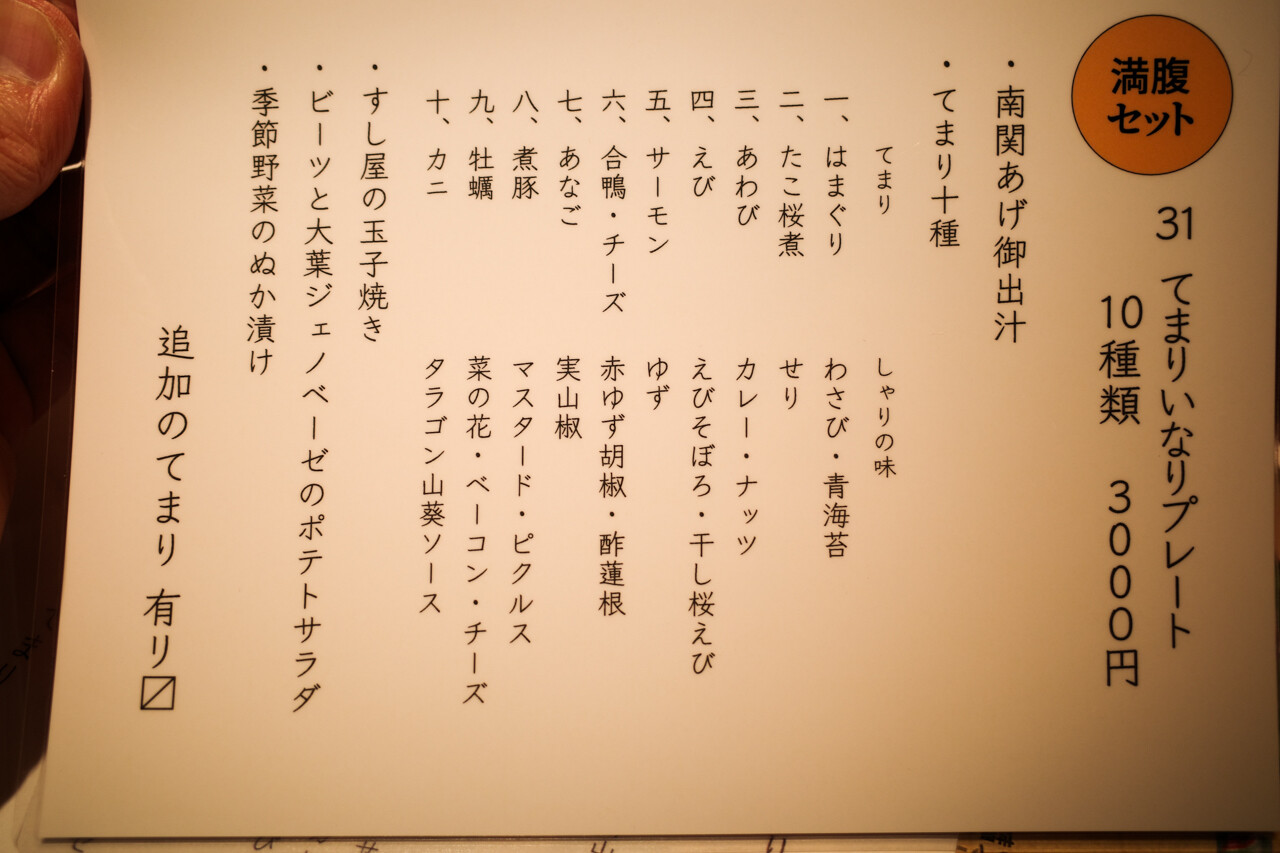 満腹
セット
31 てまりいなりプレート
10種類 3000円
・南関あげ御出汁
・てまり十種
てまり しゃりの味
一、はまぐり わさび・青海苔
二、たこ桜煮 せり
三、あわび カレー・ナッツ
四、えび えびそぼろ・干し桜えび
五、サーモン ゆず
六、合鴨・チーズ 赤ゆず胡椒・酢蓮根
七、あなご 実山椒
八、煮豚 マスタード・ピクルス
九、牡蠣 菜の花・ベーコン・チーズ
十、カニ タラゴン山葵ソース
・すし屋の玉子焼き
・ビーツと大葉ジェノベーゼのポテトサラダ
・季節野菜のぬか漬け
追加のてまり 有り〼